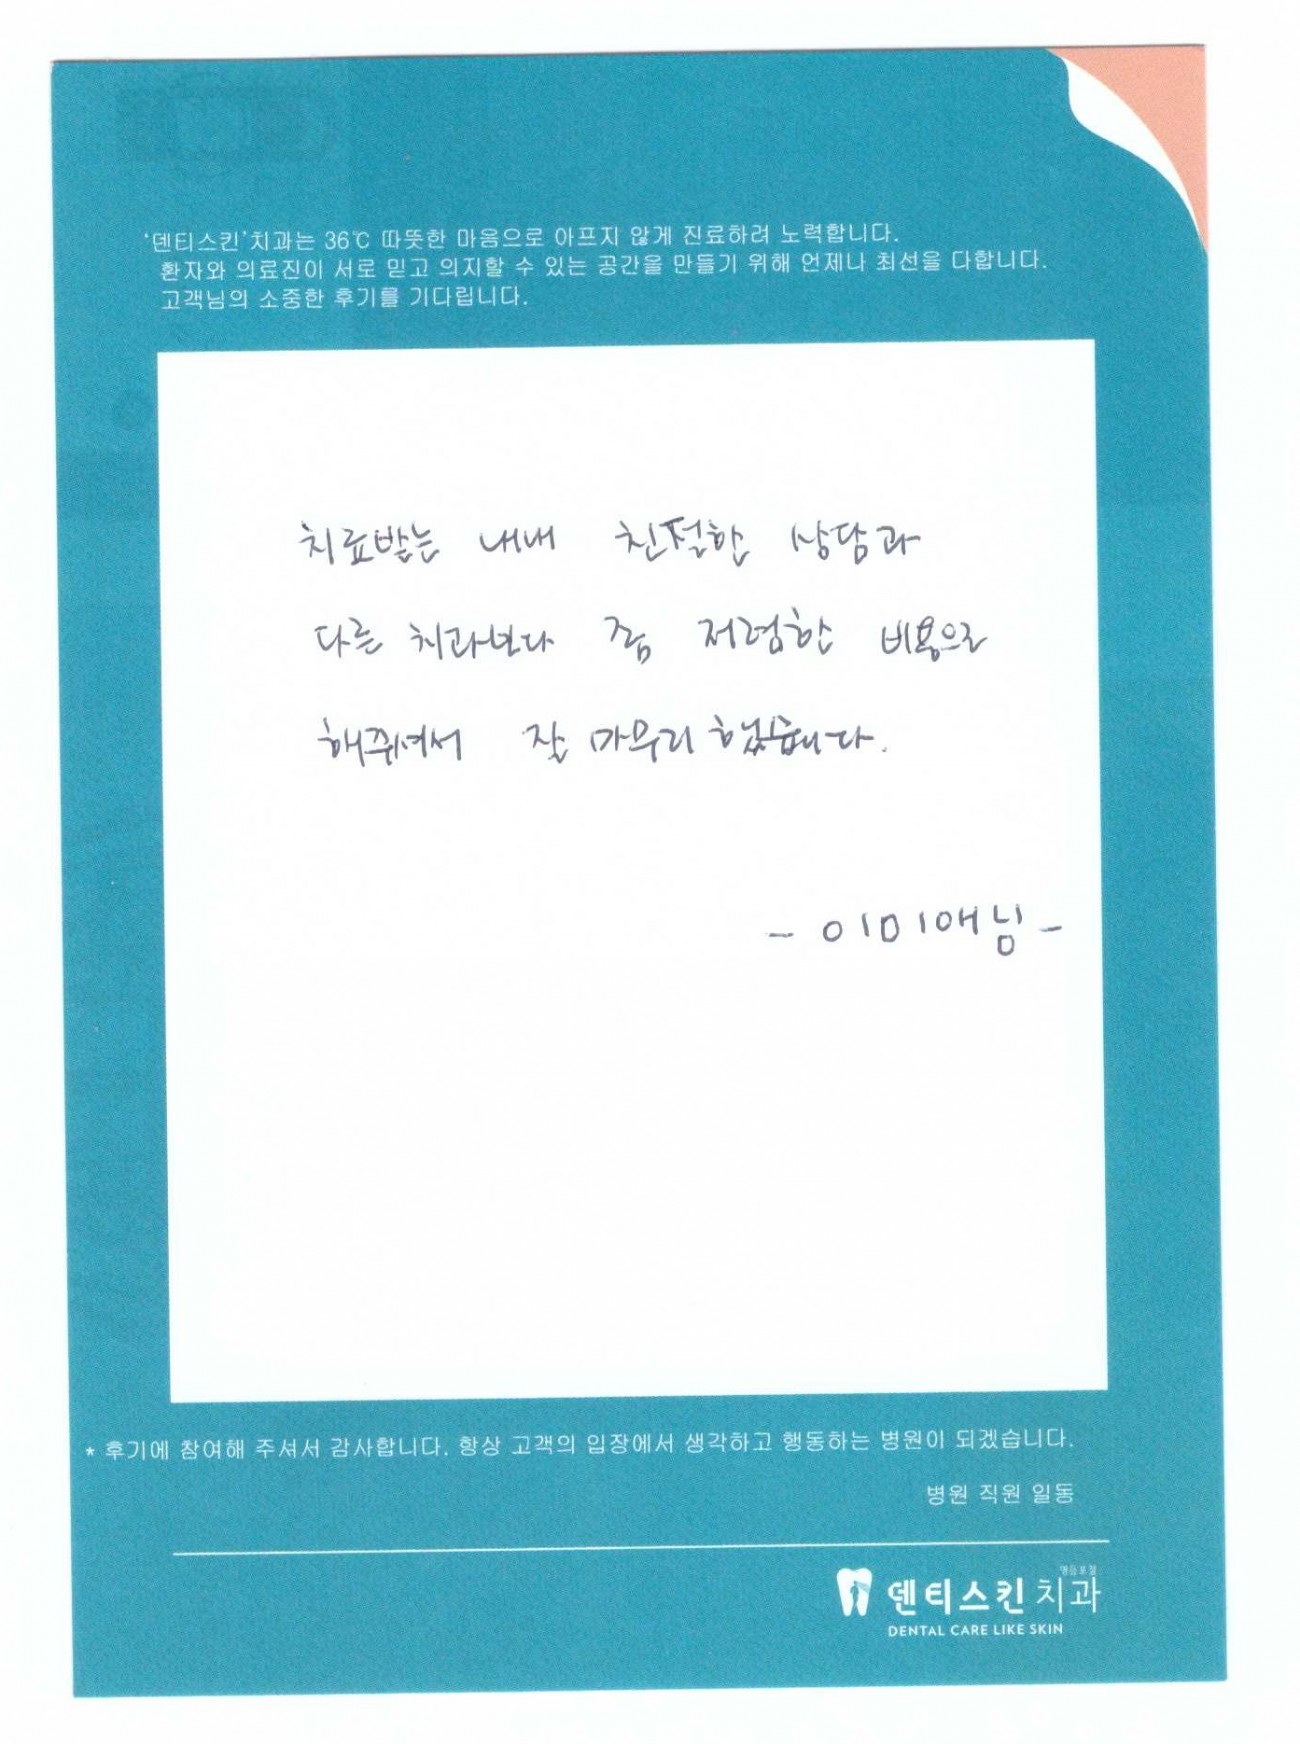 ‘덴티스킨’치과는 36℃ 따뜻한 마음으로 아프지 않게 진료하려 노력합니다.
환자와 의료진이 서로 믿고 의지할 수 있는 공간을 만들기 위해 언제나 최선을 다합니다.
고객님의 소중한 후기를 기다립니다.
치료받는 내내 친절한 상담과
다른 치과보다 좀 저렴한 비용으로
해줘여서 잘 마무리 했습니다.
- 이미애님 -
* 후기에 참여해 주셔서 감사합니다. 항상 고객의 입장에서 생각하고 행동하는 병원이 되겠습니다.
병원 직원 일동
영등포점
덴티스킨 치과
DENTAL CARE LIKE SKIN